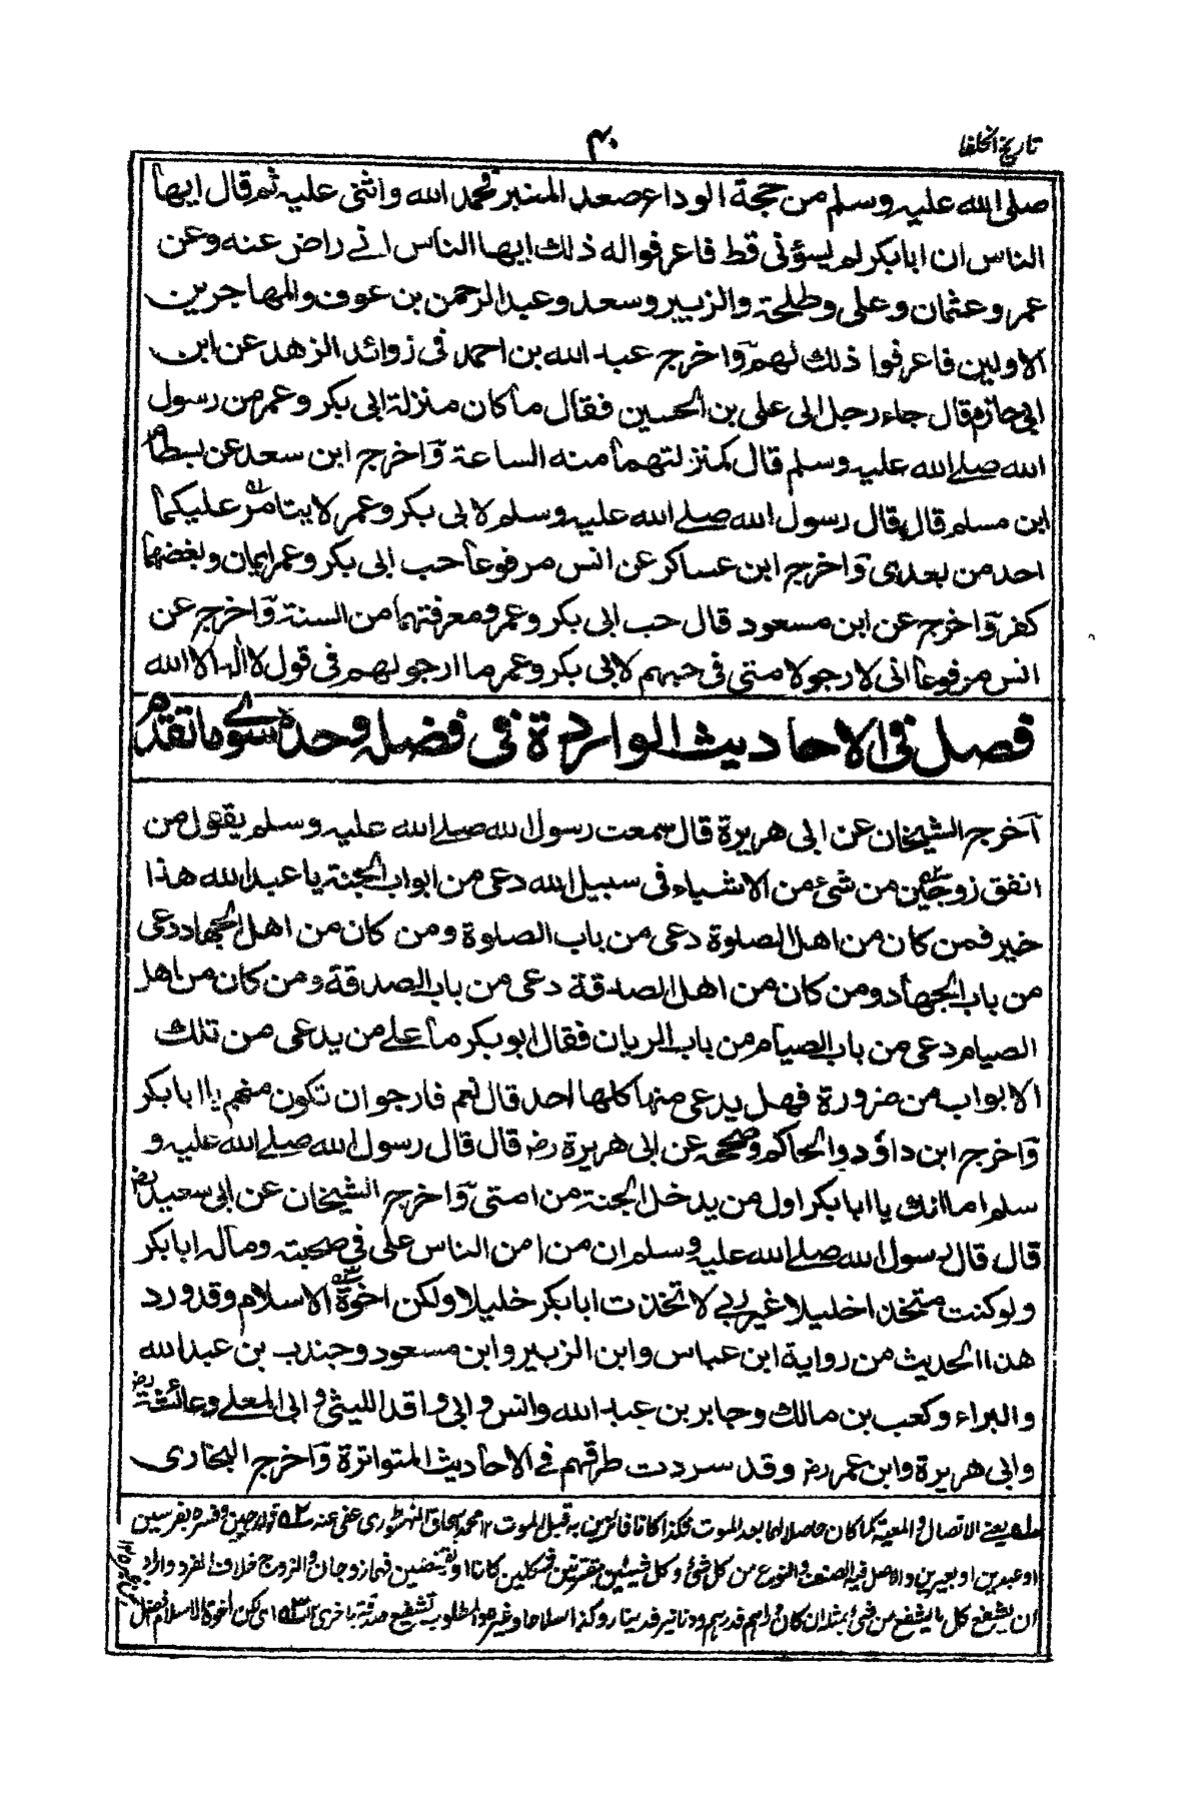 تاريخ الخلفا
۴۰
صلى الله عليه وسلم من حجة الوداع صعد المنبر فحمد الله واثنى عليه ثم قال ايها
الناس ان ابابكر لم يسؤنى قط فاعرفوا له ذلك ايها الناس انے راض عنه وعن
عمر وعثمان وعلى وطلحة والزبير وسعد وعبد الرحمن بن عوف والمهاجرين
الاولين فاعرفوا ذلك لهم وآخرج عبد الله بن احمد فى زوائد الزهد عن ابن
ابى حازم قال جاء رجل الى على بن الحسين فقال ما كان منزلة ابى بكر وعمر من رسول
الله صلے الله عليه وسلم قال كمنزلتهما منه الساعة وآخرج ابن سعد عن بسطام
ابن مسلم قال قال رسول الله صلے الله عليه وسلم لابى بكر وعمر لا يتامر عليكما
احد من بعدى وآخرج ابن عساكر عن انس مرفوعا حب ابى بكر وعمر ايمان وبغضهما
كفر وآخرج عن ابن مسعود قال حب ابى بكر وعمر ومعرفتهما من السنة وآخرج عن
انس مرفوعا انى لارجو لامتى فى حبهم لابى بكر وعمر ما ارجو لهم فى قول لا اله الا الله
فصل فى الاحاديث الواردة فى فضله وحده سوے ما تقدم
آخرج الشيخان عن ابى هريرة قال سمعت رسول الله صلے الله عليه وسلم يقول من
انفق زوجين من شئ من الاشياء فى سبيل الله دعى من ابواب الجنة يا عبد الله هذا
خير فمن كان من اهل الصلوة دعى من باب الصلوة ومن كان من اهل الجهاد دعى
من باب الجهاد ومن كان من اهل الصدقة دعى من باب الصدقة ومن كان من اهل
الصيام دعى من باب الصيام من باب الريان فقال ابو بكر ما علے من يدعى من تلك
الابواب من ضرورة فهل يدعى منها كلها احد قال نعم فارجو ان تكون منهم يا ابا بكر
وآخرج ابن داؤد والحاكم وصححه عن ابى هريرة رض قال قال رسول الله صلے الله عليه و
سلم اما انك يا ابا بكر اول من يدخل الجنة من امتى وآخرج الشيخان عن ابى سعيد رض
قال قال رسول الله صلے الله عليه وسلم ان من امن الناس على فى صحبته وماله ابا بكر
ولو كنت متخذا خليلا غير ربے لاتخذت ابا بكر خليلا ولكن اخوة الاسلام وقد ورد
هذا الحديث من رواية ابن عباس وابن الزبير وابن مسعود وجندب بن عبد الله
والبراء وكعب بن مالك وجابر بن عبد الله وانس وابى واقد الليثى وابى المعلے وعائشة رض
وابى هريرة وابن عمر رض وقد سردت طرقهم فے الاحاديث المتواترة وآخرج البخارى
يعنے الاتصال والمعية كما كان حاصلا لهما بعد الموت فكذا كانا فائزين به قبل الموت ۱۲ محمد اسحاق عفى عنه ۲ قوله زوجين وفسره بفرسين
او عبدين او بعيرين والاصل فيه الصنف والنوع من كل شئ وكل شيئين مقترنين شكلين كانا او نقيضين فهما زوجان والزوج خلاف الفرد واراد
ان يشفع كل ما يشفع من شئ بمثله ان كان دراهم فدرهم ودنانير فدينار وكذا سلاحا وغيره والمطلوب تشفيع صدقة باخرى ۳ اى لكن اخوة الاسلام افضل